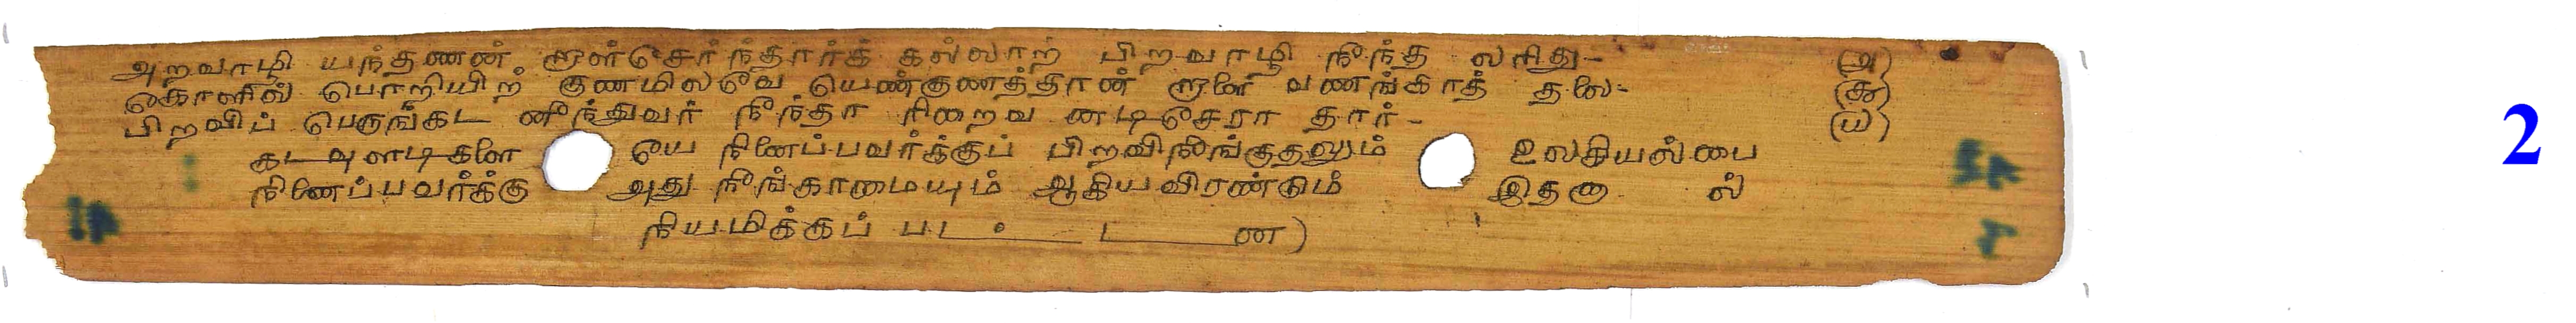 அறவாழி யந்தணன் றாள்சேர்ந்தார்க் கல்லாற் பிறவாழி நீந்த லரிது- (அ)
கோளில் பொறியிற் குணமிலவே யெண்குணத்தான் றாளை வணங்காத் தலை- (கூ)
பிறவிப் பெருங்கட னீந்துவர் நீந்தா ரிறைவ னடிசேரா தார்- (ய)
கடவுளடிகளை யே நினைப்பவர்க்குப் பிறவிநீங்குதலும் உலகியல்பை
நினைப்பவர்க்கு அது நீங்காமையும் ஆகியவிரண்டும் இதனா ல்
நியமிக்கப் பட ட ன)
2